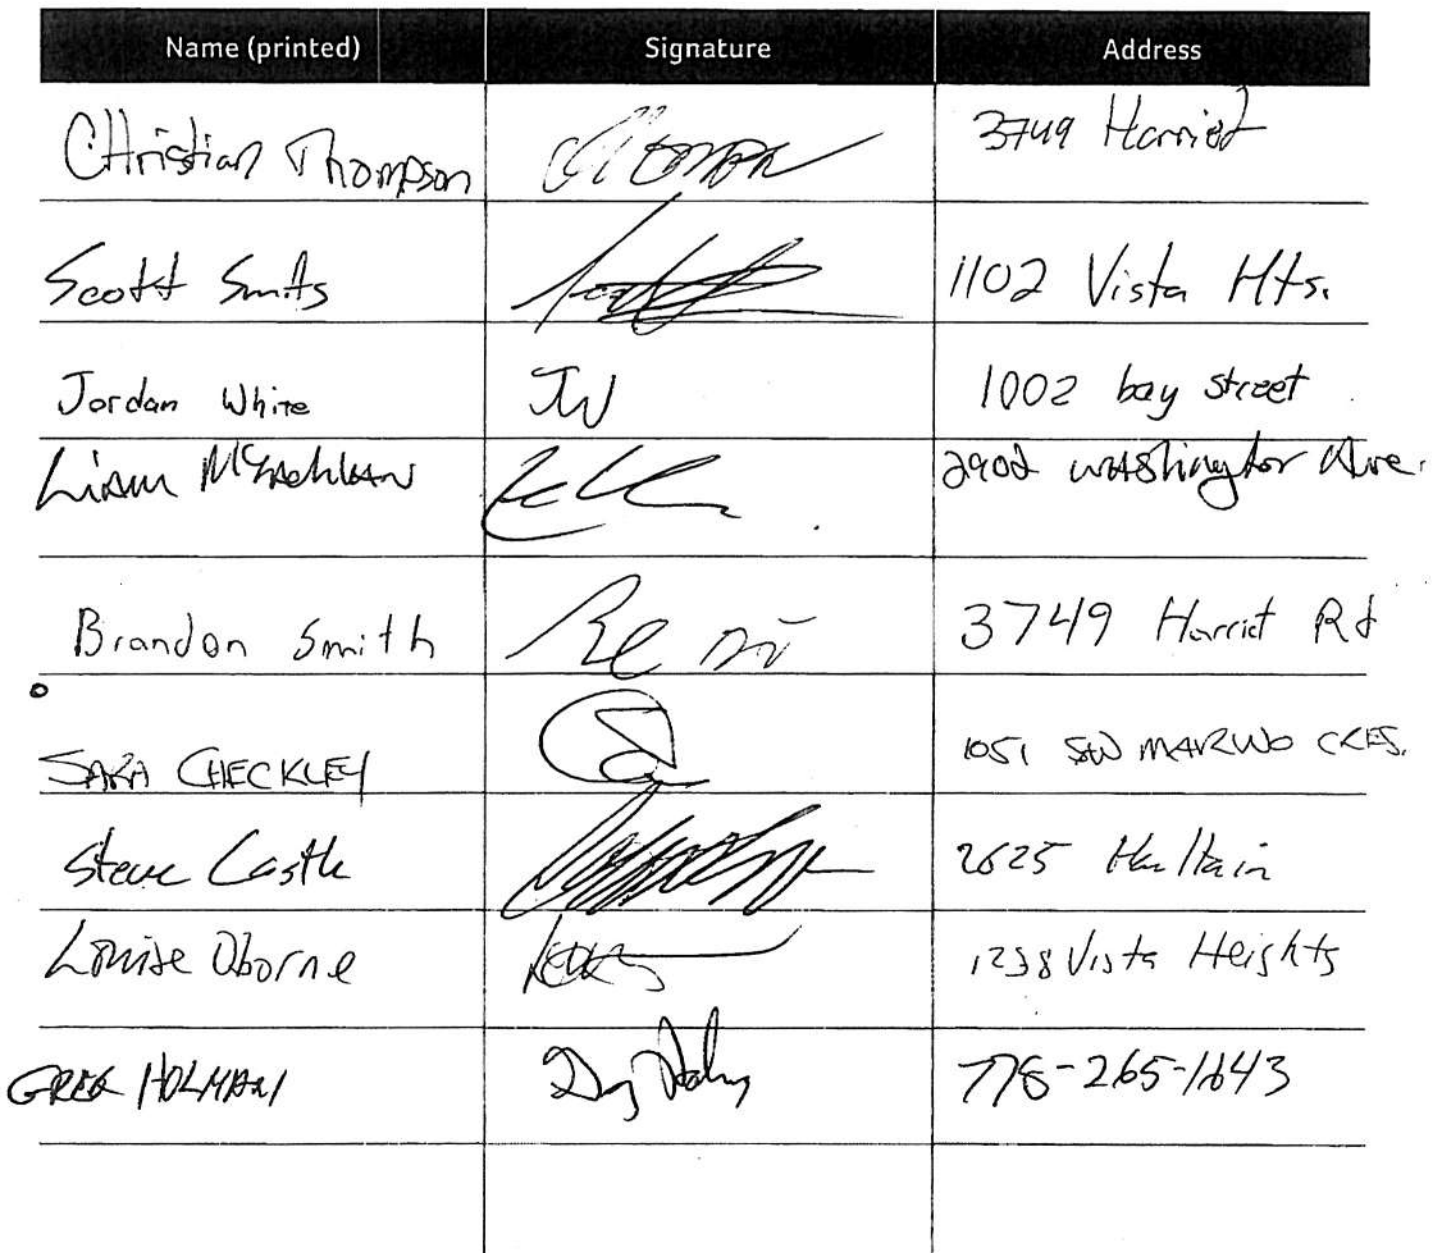 Name (printed) Signature Address
CHristian Thompson 3749 Harriet
Scott Smits 1102 Vista Hts.
Jordan White JW 1002 bay street
Liam McLachlan 2902 Washington Ave.
Brandon Smith 3749 Harriet Rd
SARA CHECKLEY 1051 CRES.
Steve Castle 2625 Haultain
Louise Oborne 1238 Vista Heights
GREG HOLMAN 778-265-1643